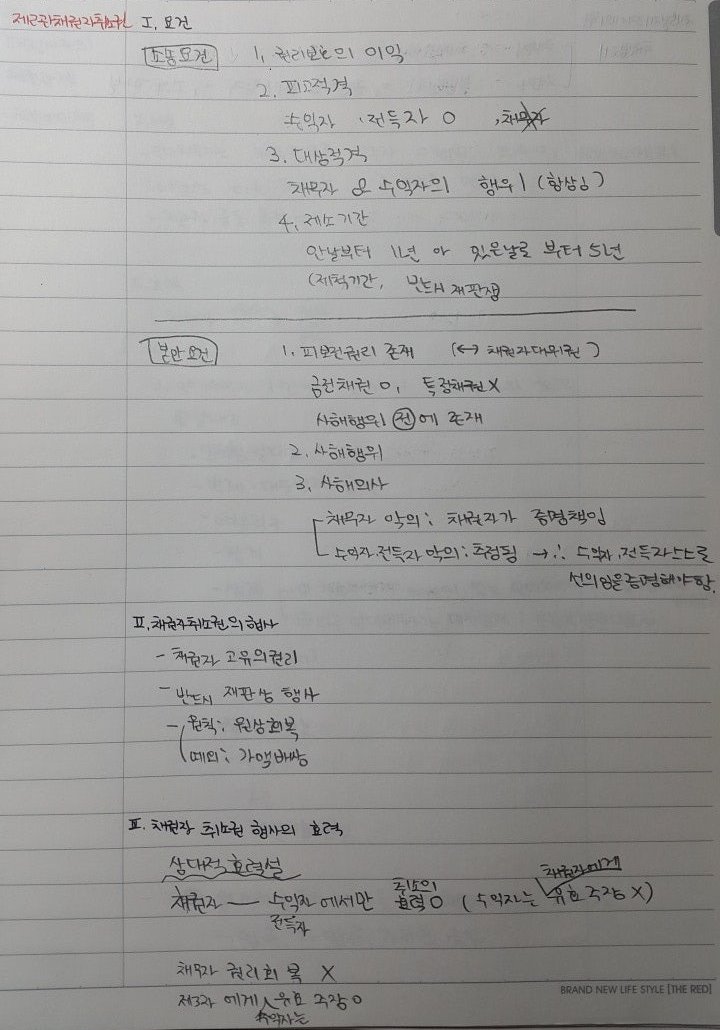 제2관 채권자취소권 I. 요건
소송요건 1. 권리보호의 이익
2. 피고적격
수익자, 전득자 O, 채무자
3. 대상적격
채무자 & 수익자의 행위 (항상!)
4. 제소기간
안날부터 1년 or 있은날로부터 5년
(제척기간, 반드시 재판상
본안요건 1. 피보전권리 존재 (↔ 채권자대위권)
금전채권 O, 특정채권 X
사해행위 전에 존재
2. 사해행위
3. 사해의사
채무자 악의: 채권자가 증명책임
수익자, 전득자 악의: 추정됨 → ∴ 수익자, 전득자 스스로
선의임을 증명해야함.
II. 채권자취소권의 행사
- 채권자 고유의 권리
- 반드시 재판상 행사
- 원칙: 원상회복
예외: 가액배상
III. 채권자 취소권 행사의 효력
상대적효력설
채권자에게
취소의
채권자 — 수익자 에서만 효력 O (수익자는 유효 주장 X)
전득자
채무자 권리회복 X
제3자 에게 유효 주장 O
수익자는
BRAND NEW LIFE STYLE [THE RED]